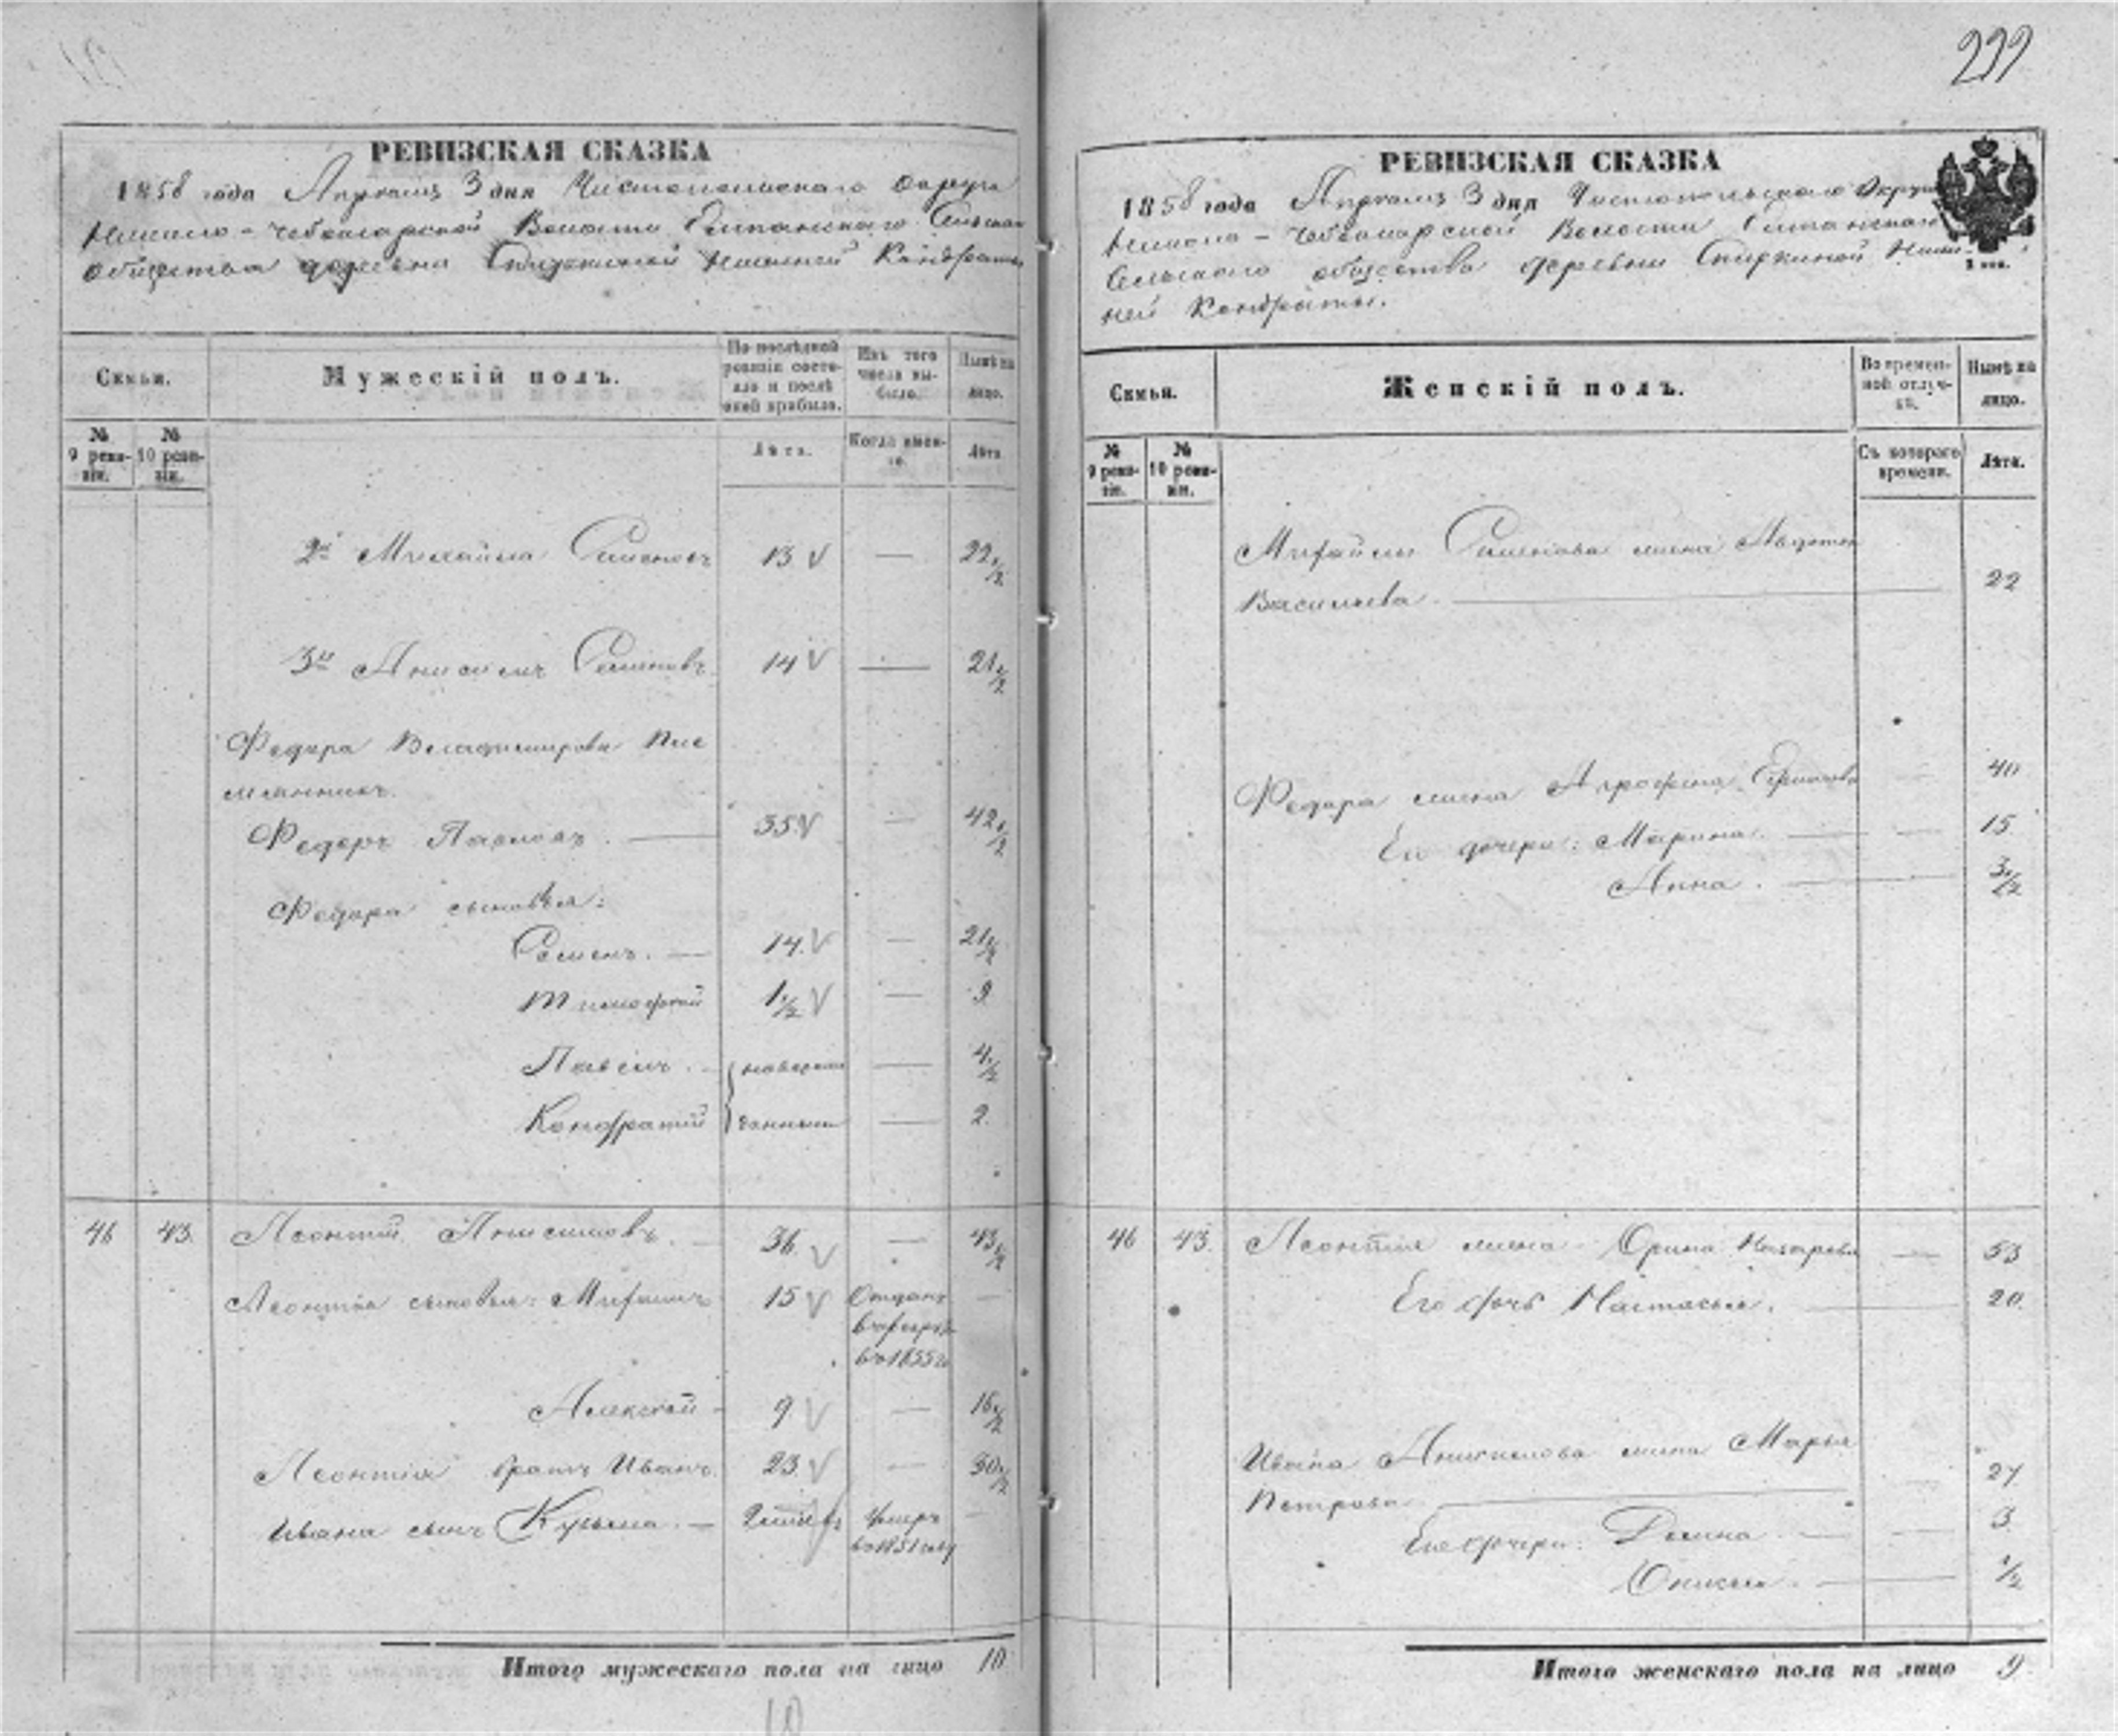 299
РЕВИЗСКАЯ СКАЗКА
1858 года Апреля 3 дня Чистопольского Округа
Волости Сельскаго
общества деревни Спиркиной Кондраты
Семьи.
Мужескій полъ.
По послѣдней ревизіи состояло и послѣ оной прибыло.
Изъ того числа выбыло.
Нынѣ на лицо.
№ 9 ревизіи.
№ 10 ревизіи.
Лѣта.
Когда именно.
Лѣта.
2й Михайла Семеновъ 13 — 22 1/2
3й Анисимъ Семеновъ 14 — 21 1/2
Федора Владимирова Пле
мянникъ.
Федоръ Павловъ. — 35 — 42 1/2
Федора сыновья:
Семенъ. — 14. — 21 1/2
Тимофей 1/2 — 9
Павелъ. — — 4 1/2
Кондратій — 2.
46 43. Леонтій Анисимовъ. 36 — 43 1/2
Леонтія сыновья: 15 Отданъ —
в 1855 г
Алексѣй — 9 — 16 1/2
Леонтія братъ Иванъ. 23. — 30 1/2
Ивана сынъ Кузьма. — Умеръ —
в 1851 году
Итого мужескаго пола на лицо 10
10
РЕВИЗСКАЯ СКАЗКА
1858 года Апреля 3 дня Чистопольского Округа
Волости
Сельскаго общества деревни Спиркиной Ниж-
ней Кондраты.
Семьи.
Женскій полъ.
Во временной отлучкѣ.
Нынѣ на лицо.
№ 9 ревизіи.
№ 10 ревизіи.
Съ котораго времени.
Лѣта.
Михайлы Семенова жена Авдотья
Васильева. — 22
Федора жена — 40
Ея дочери: Марина. — 15
Анна. — 3 1/2
46 43. Леонтія жена Орина Назарова — 53
Его дочь Настасья. — 20.
Ивана Анисимова жена Марья
Петрова — 27
Ея дочери: — 3.
— 1/2
Итого женскаго пола на лицо 9